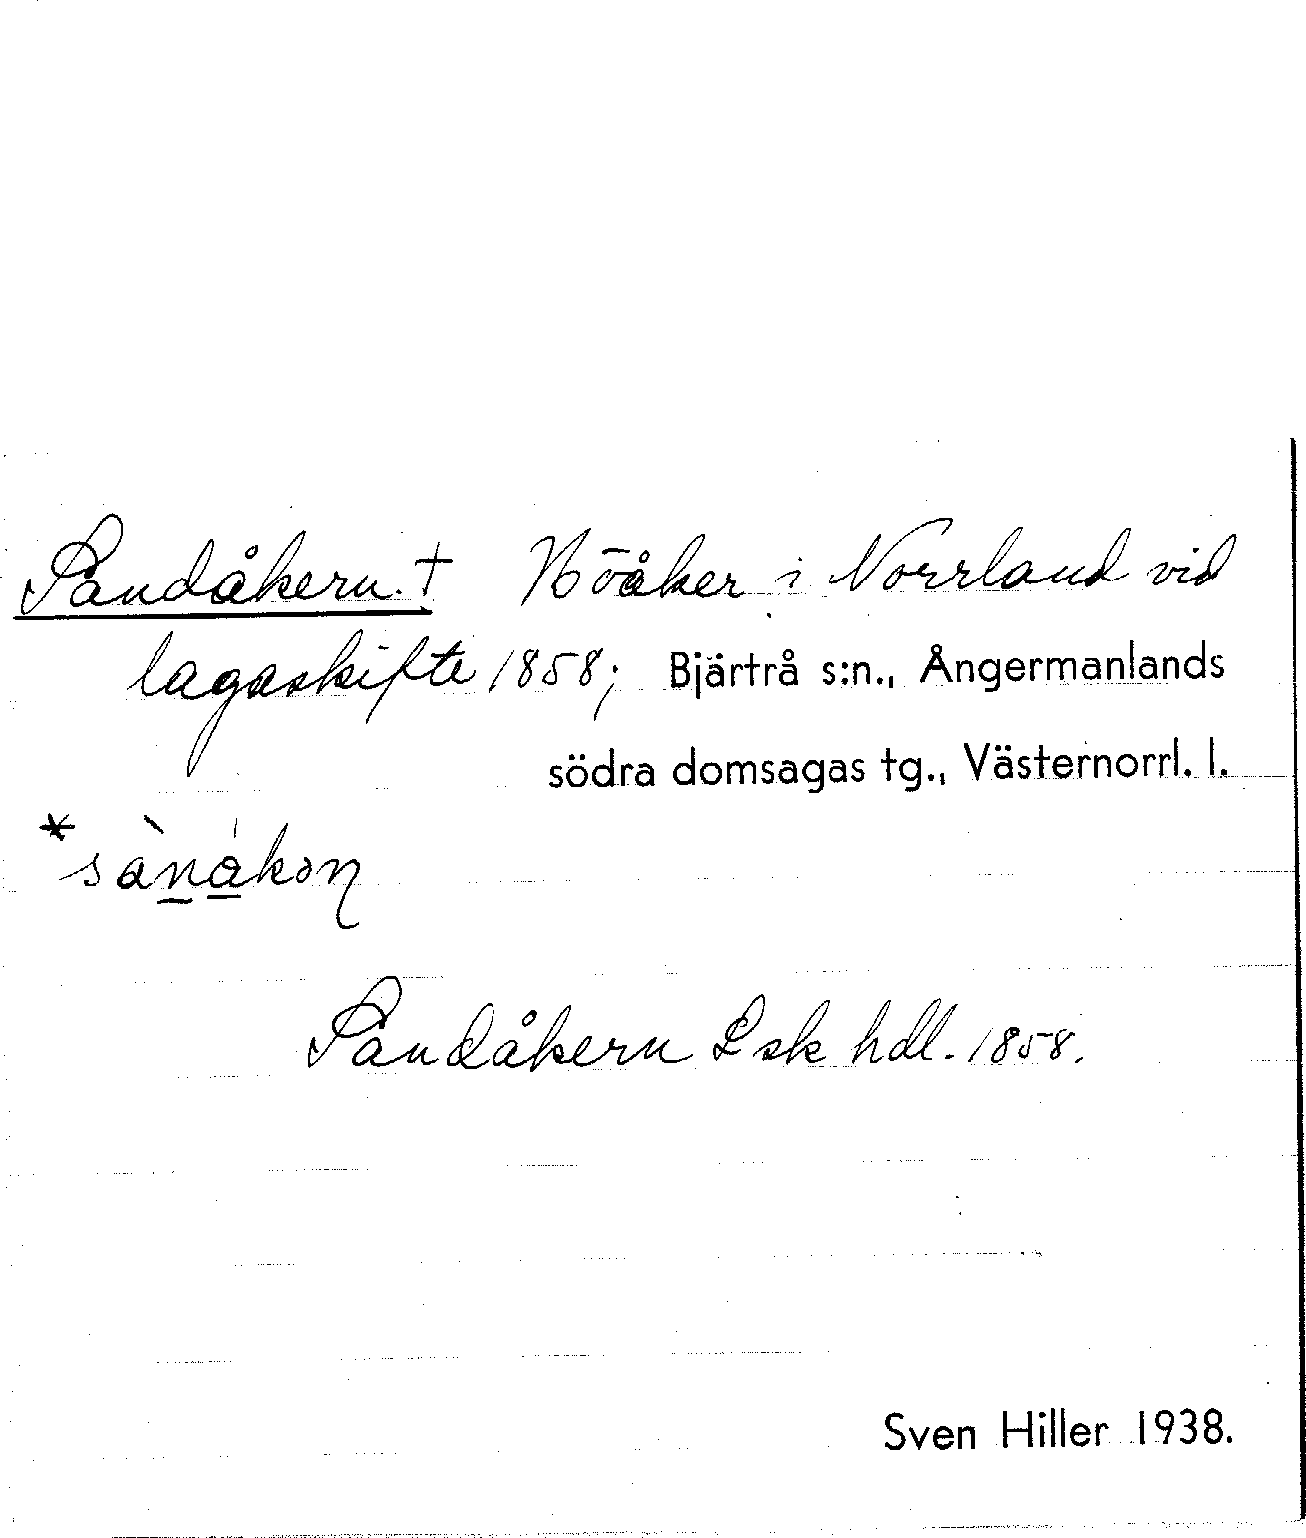 Sandåkern. † Höåker i Norrland vid
lagaskifte 1858; Bjärtrå s:n., Ångermanlands
södra domsagas tg., Västernorrl. l.
Sandåkern Lsk hdl. 1858.
Sven Hiller 1938.